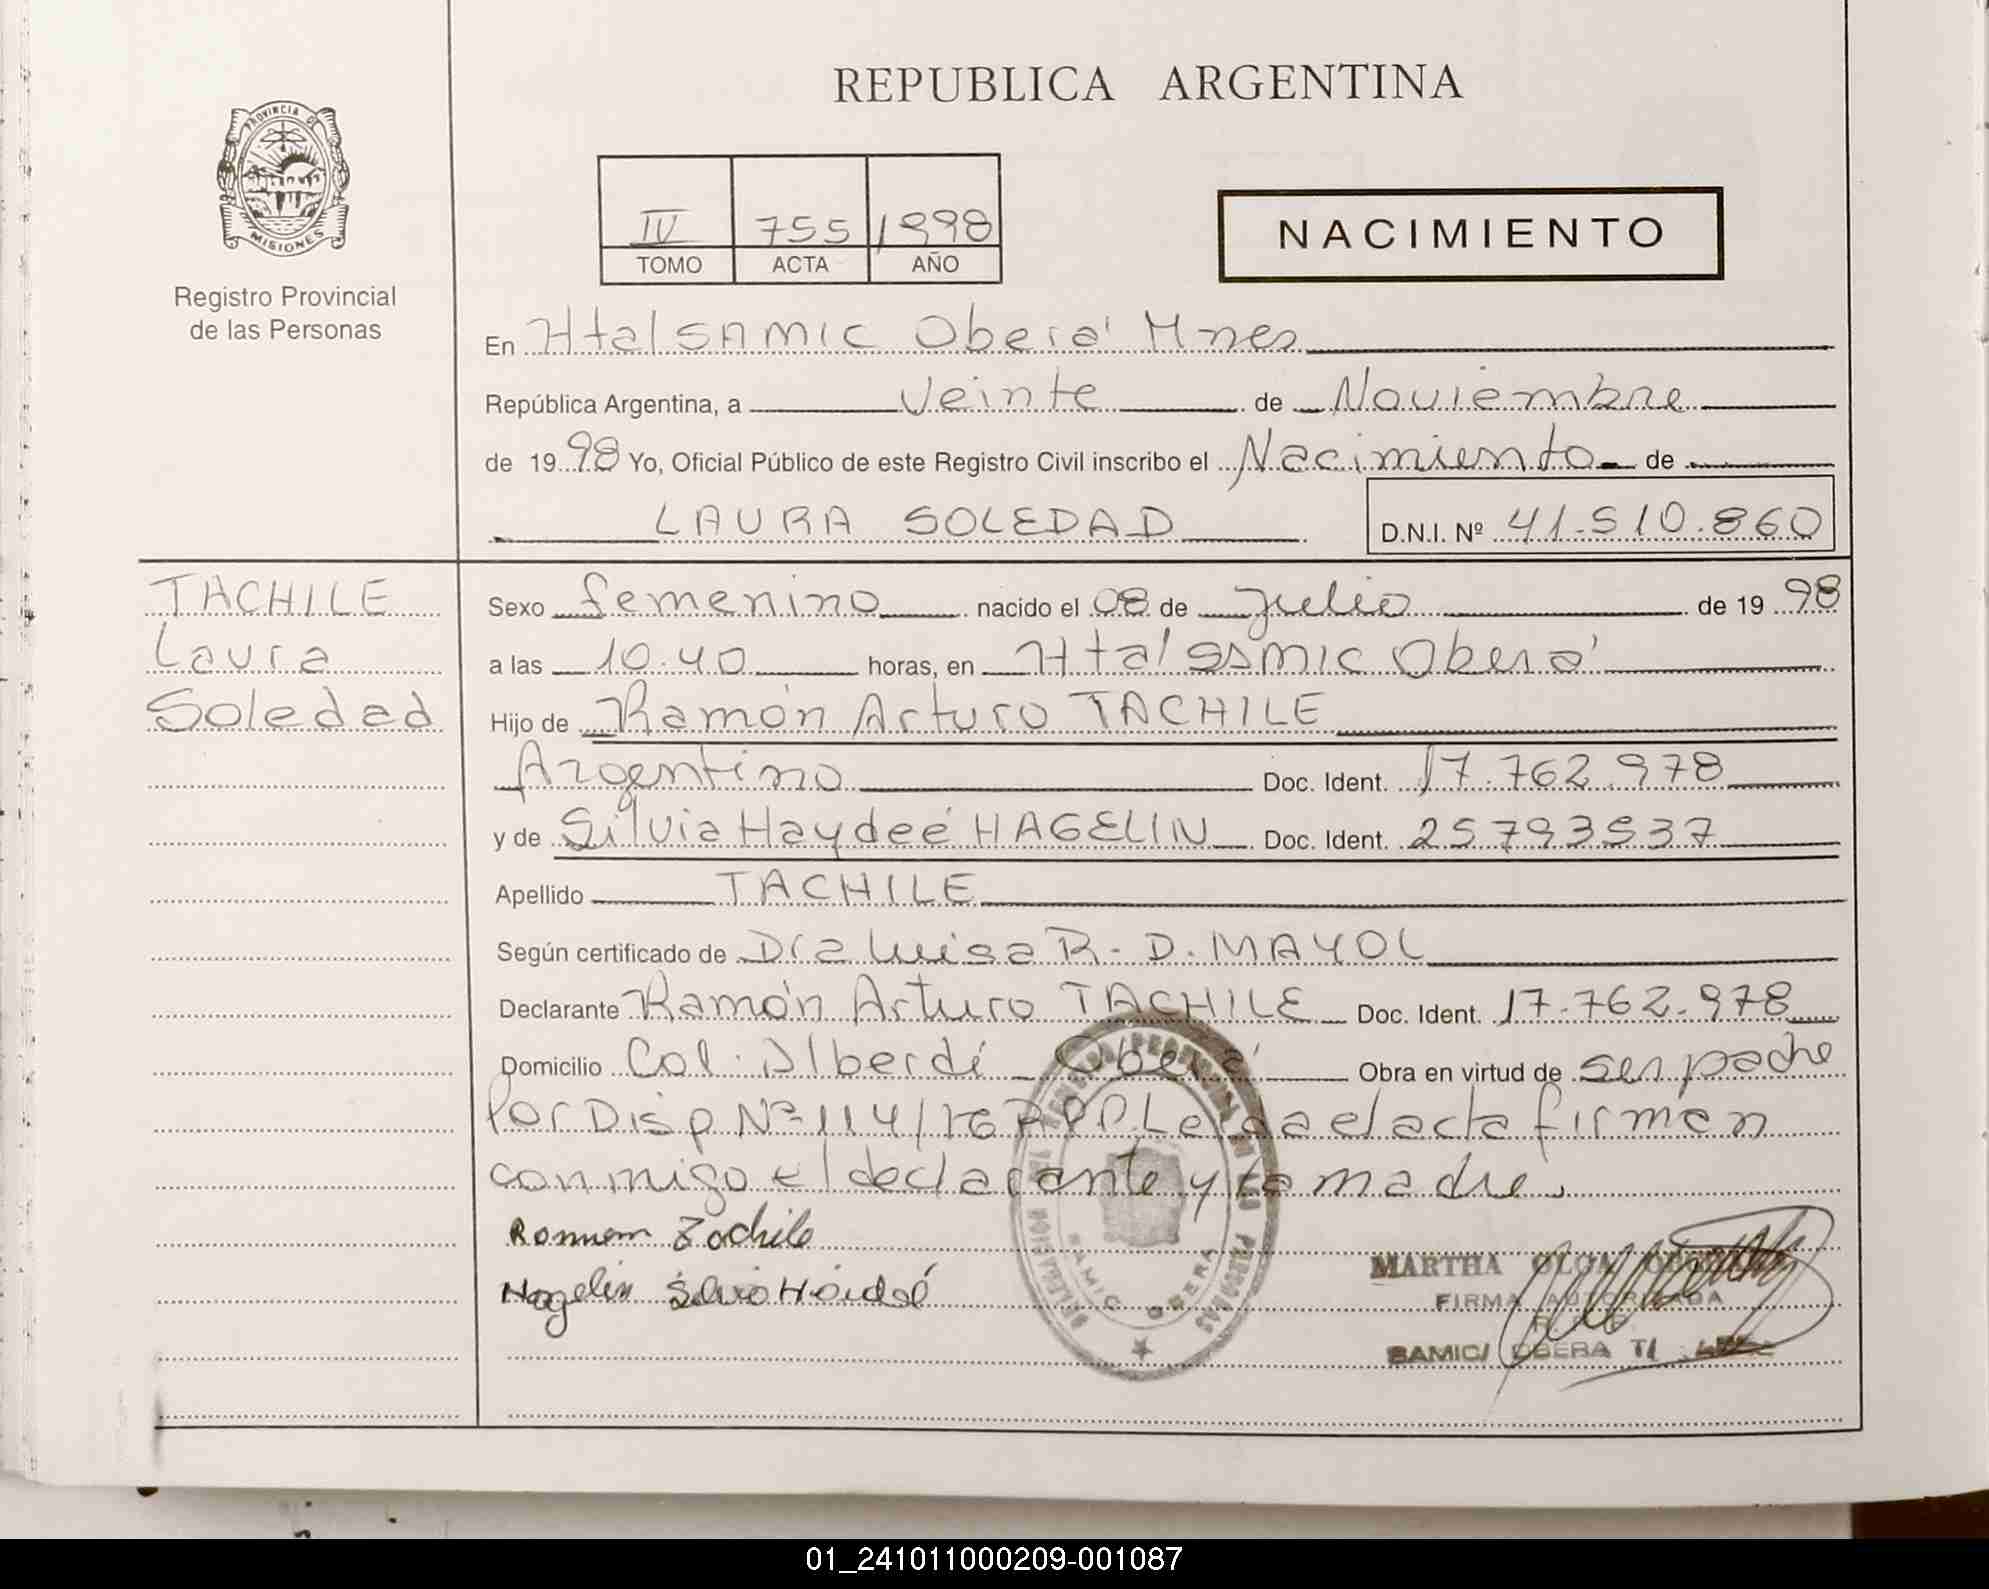 REPUBLICA ARGENTINA
PROVINCIA DE
MISIONES
Registro Provincial
de las Personas
IV 755 1998
TOMO ACTA AÑO
NACIMIENTO
En Htal SAMIC Oberá Mnes
República Argentina, a Veinte de Noviembre
de 1998 Yo, Oficial Público de este Registro Civil inscribo el Nacimiento de
LAURA SOLEDAD D.N.I. Nº 41.510.860
TACHILE
Laura
Soledad
Sexo femenino nacido el 08 de Julio de 1998
a las 10.40 horas, en Htal SAMIC Oberá
Hijo de Ramón Arturo TACHILE
Argentino Doc. Ident. 17.762.978
y de Silvia Haydeé HAGELIN Doc. Ident. 25793537
Apellido TACHILE
Según certificado de Dra Luisa R. D. MAYOL
Declarante Ramón Arturo TACHILE Doc. Ident. 17.762.978
Domicilio Col. Alberdi Oberá Obra en virtud de ser padre
Por Disp Nº 114/76 RPP. Leída el acta firman
conmigo el declarante y la madre.
Ramon Tachile
Hagelin Silvia Haideé
MARTHA OLGA
FIRMA AUTORIZADA
R.P.P.
SAMIC/ OBERA
SAMIC OBERA
01_241011000209-001087